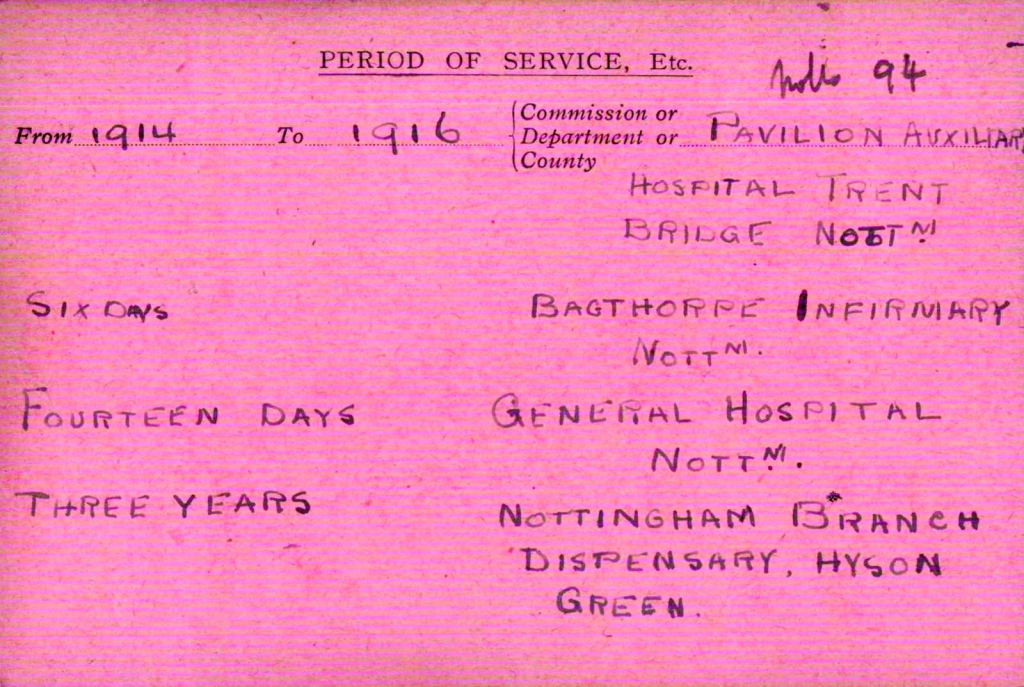 PERIOD OF SERVICE, Etc.
Notts 94
From 1914 To 1916 Commission or Department or County PAVILION AUXILIARY
HOSPITAL TRENT
BRIDGE NOTTM
SIX DAYS BAGTHORPE INFIRMARY
NOTTM.
FOURTEEN DAYS GENERAL HOSPITAL
NOTTM.
THREE YEARS NOTTINGHAM BRANCH
DISPENSARY, HYSON
GREEN.